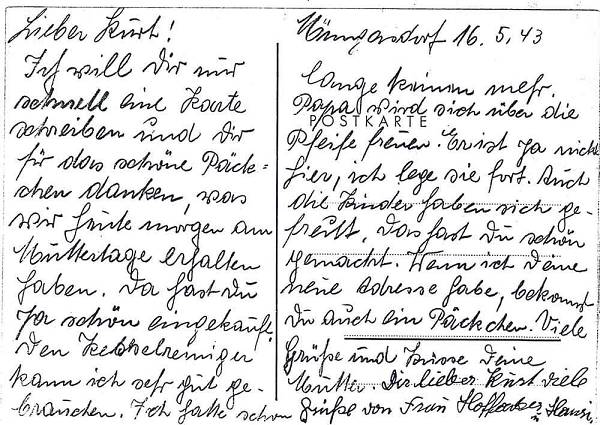 Lieber Kurt!
Ich will Dir nur
schnell eine Karte
schreiben und Dir
für das schöne Päck=
chen danken, was
wir heute morgen am
Muttertage erhalten
haben. Da hast Du
ja schön eingekauft.
Den Kesselreiniger
kann ich sehr gut ge-
brauchen. Ich hatte schon
Müngersdorf 16.5.43
lange keinen mehr.
Papa wird sich über die
POSTKARTE
Pfeife freuen. Er ist ja nicht
hier, ich lege sie fort. Auch
die Kinder haben sich ge-
freut, das hast Du schön
gemacht. Wenn ich Deine
neue Adresse habe, bekomst
Du auch ein Päckchen. Viele
Grüße und Küsse Deine
Mutter. Dir lieber Kurt viele
Grüße von Frau u. Hansi